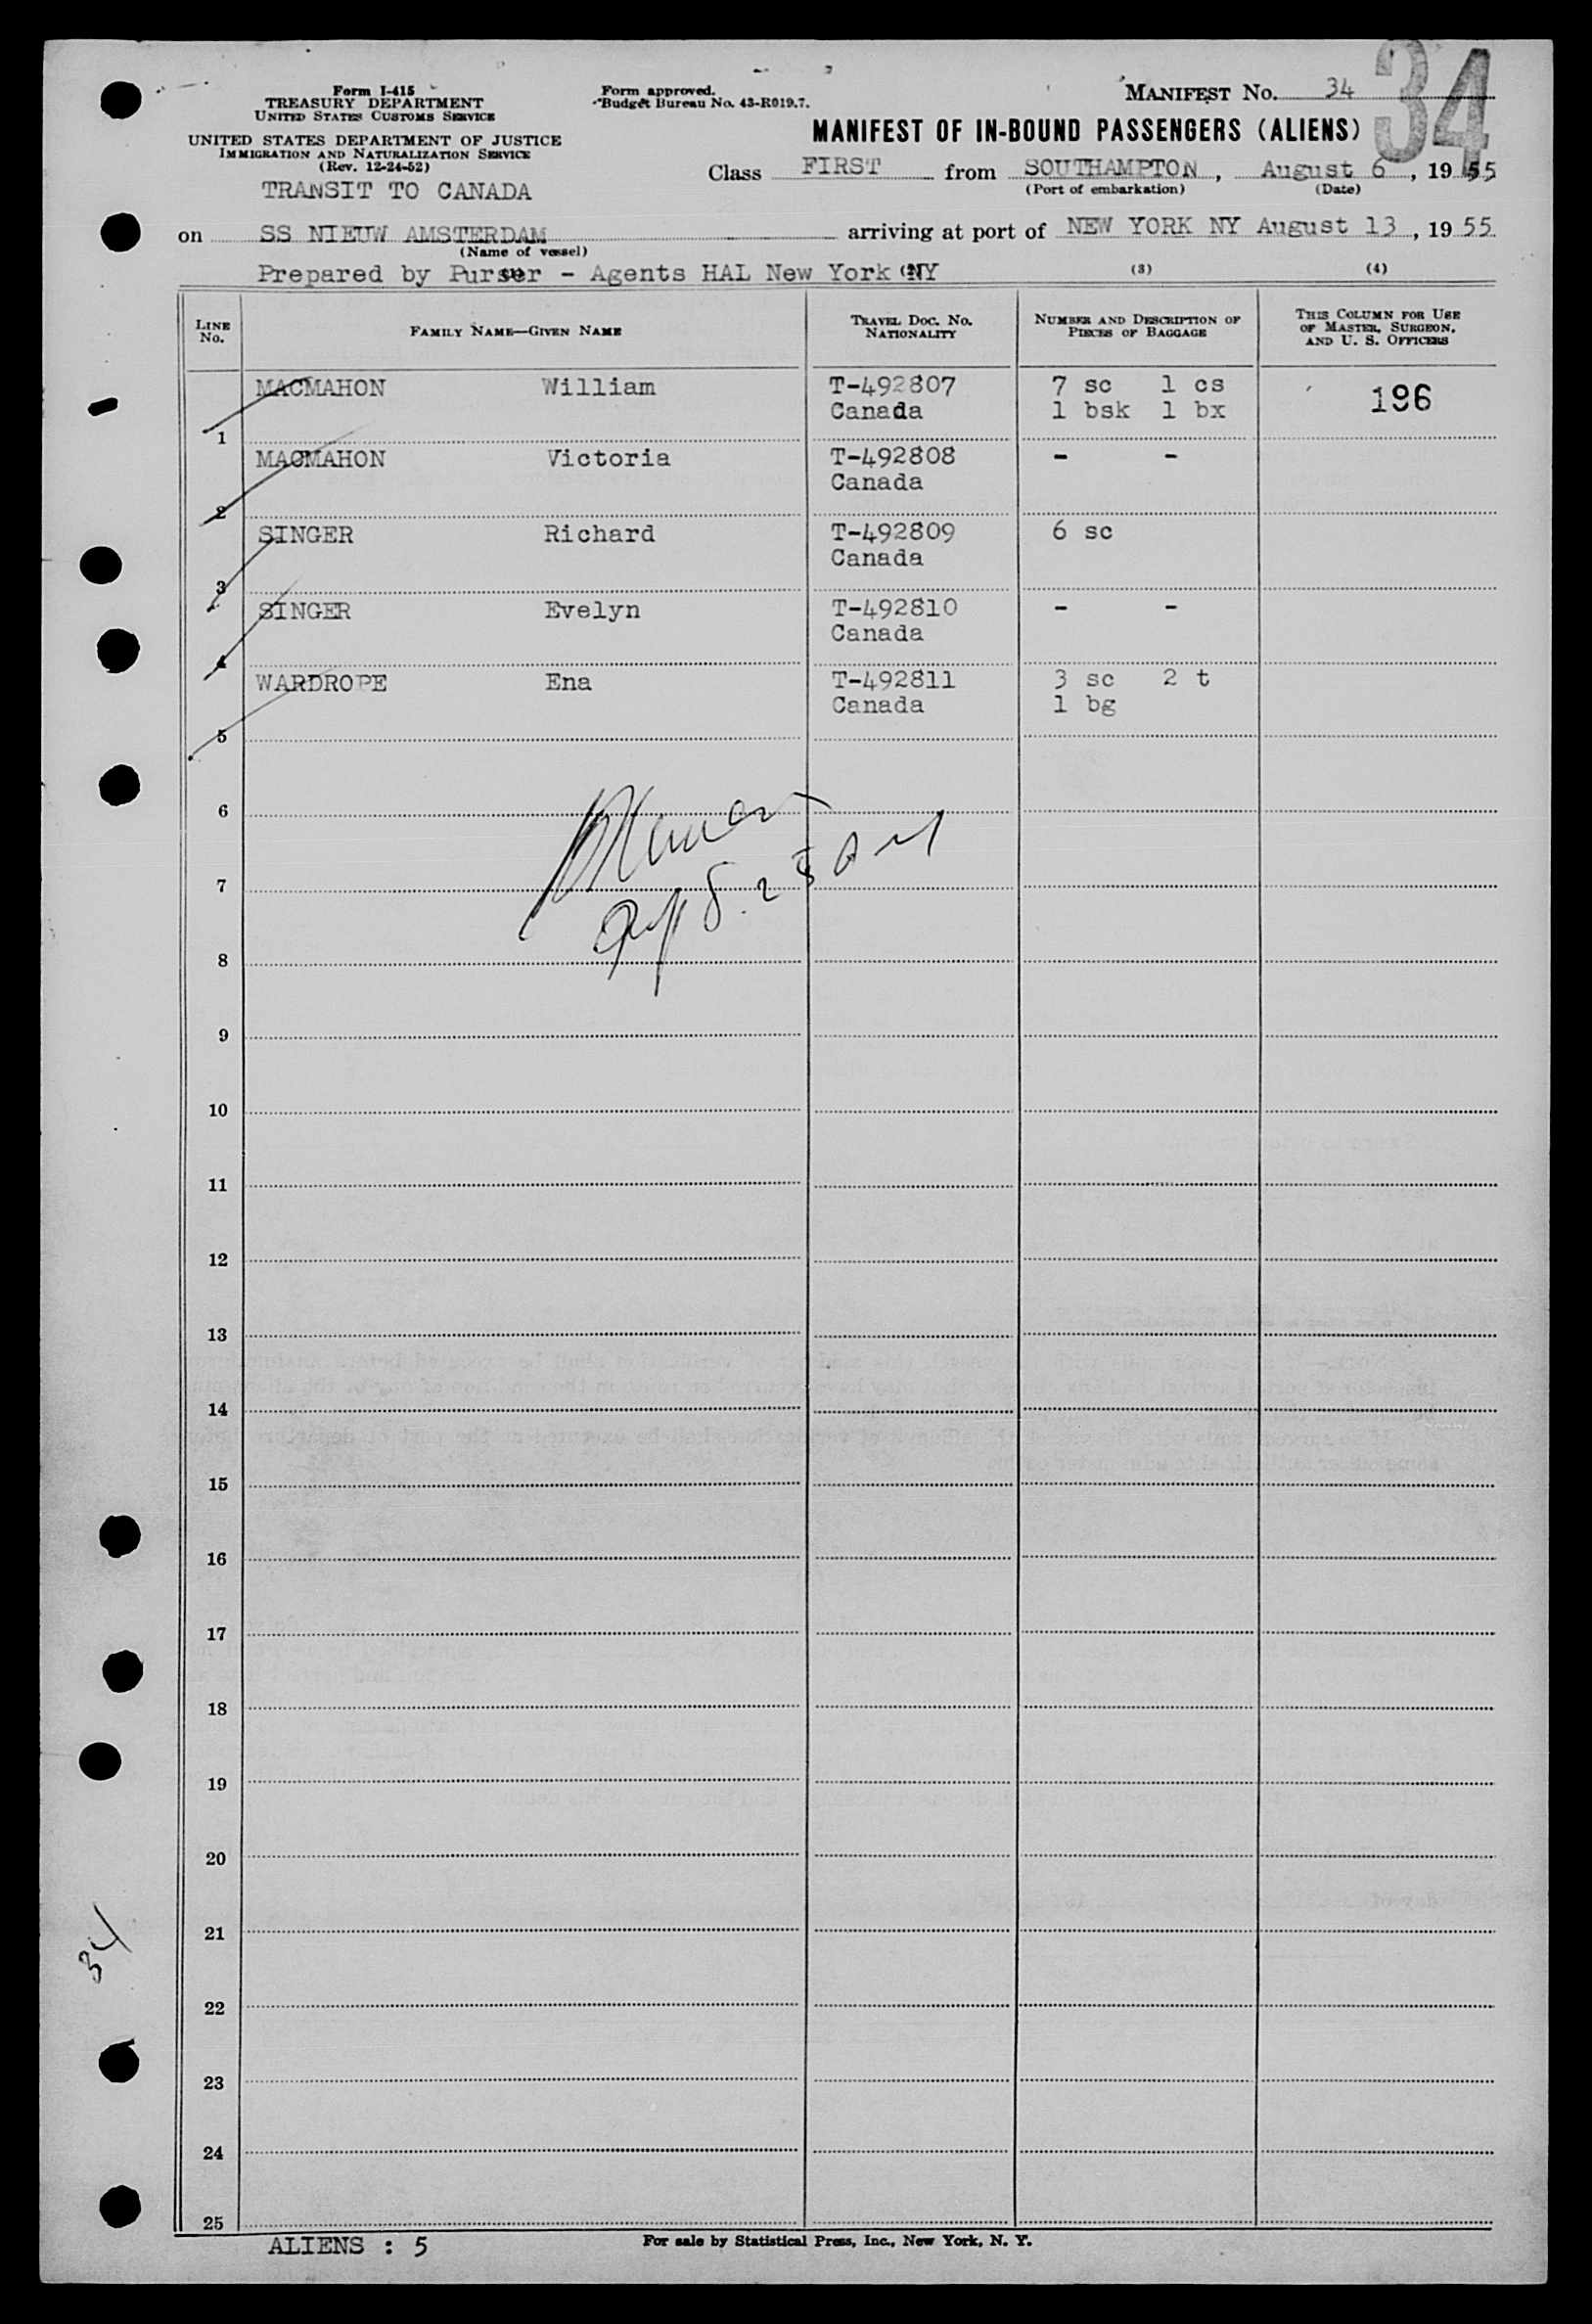 34
Form I-415
TREASURY DEPARTMENT
UNITED STATES CUSTOMS SERVICE
UNITED STATES DEPARTMENT OF JUSTICE
IMMIGRATION AND NATURALIZATION SERVICE
(Rev. 12-24-52)
TRANSIT TO CANADA
Form approved.
Budget Bureau No. 43-R019.7.
MANIFEST No. 34
MANIFEST OF IN-BOUND PASSENGERS (ALIENS)
Class FIRST from SOUTHAMPTON, August 6, 1955
(Port of embarkation) (Date)
on SS NIEUW AMSTERDAM arriving at port of NEW YORK NY August 13, 1955
(Name of vessel)
Prepared by Purser - Agents HAL New York NY (3) (4)
LINE No. FAMILY NAME—GIVEN NAME TRAVEL DOC. NO. NATIONALITY NUMBER AND DESCRIPTION OF PIECES OF BAGGAGE THIS COLUMN FOR USE OF MASTER, SURGEON, AND U. S. OFFICERS
MACMAHON William T-492807 7 sc 1 cs 196
Canada 1 bsk 1 bx
1
MACMAHON Victoria T-492808 - -
Canada
2
SINGER Richard T-492809 6 sc
Canada
3
SINGER Evelyn T-492810 - -
Canada
4
WARDROPE Ena T-492811 3 sc 2 t
Canada 1 bg
5
6
7
8
9
10
11
12
13
14
15
16
17
18
19
20
21
34
22
23
24
25
ALIENS : 5
For sale by Statistical Press, Inc., New York, N. Y.